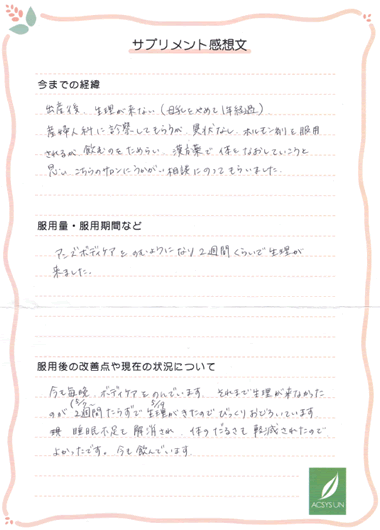 サプリメント感想文
今までの経緯
出産後、生理が来ない(母乳をやめて1年経過)
産婦人科に診察してもらうが、異状なし ホルモン剤を服用
されるが 飲むのをためらい、漢方薬で 体をなおしていこうと
思い こちらのサロンにうかがい相談にのってもらいました。
服用量・服用期間など
アンズボディケアをのむようになり 2週間くらいで 生理が
来ました。
服用後の改善点や現在の状況について
今も毎晩、ボディケアをのんでいます。それまで生理が来なかった
のが 2週間たらずで生理がきたので びっくりおどろいています。
睡眠不足も 解消され、体のだるさも 軽減されたので、
よかったです。今も飲んでいます。
ACSYS UN